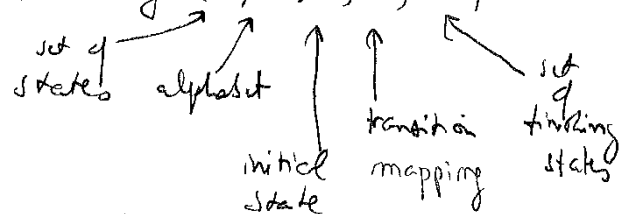 set of
states
alphabet
initial
state
transition
mapping
set
of
finishing
states